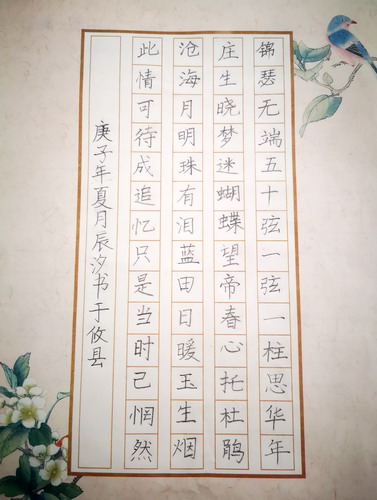 锦瑟无端五十弦一弦一柱思华年
庄生晓梦迷蝴蝶望帝春心托杜鹃
沧海月明珠有泪蓝田日暖玉生烟
此情可待成追忆只是当时已惘然
庚子年夏月辰汐书于攸县